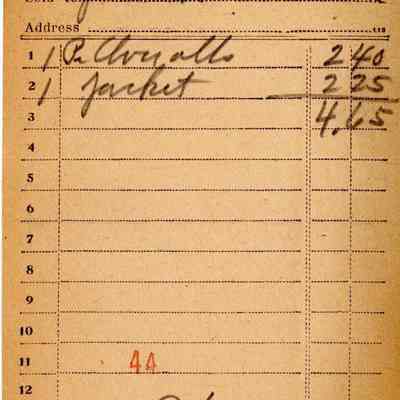 Address
1 1 Pr Overalls 2 40
2 1 Jacket 2 25
3 4.65
4
5
6
7
8
9
10
11 44
12